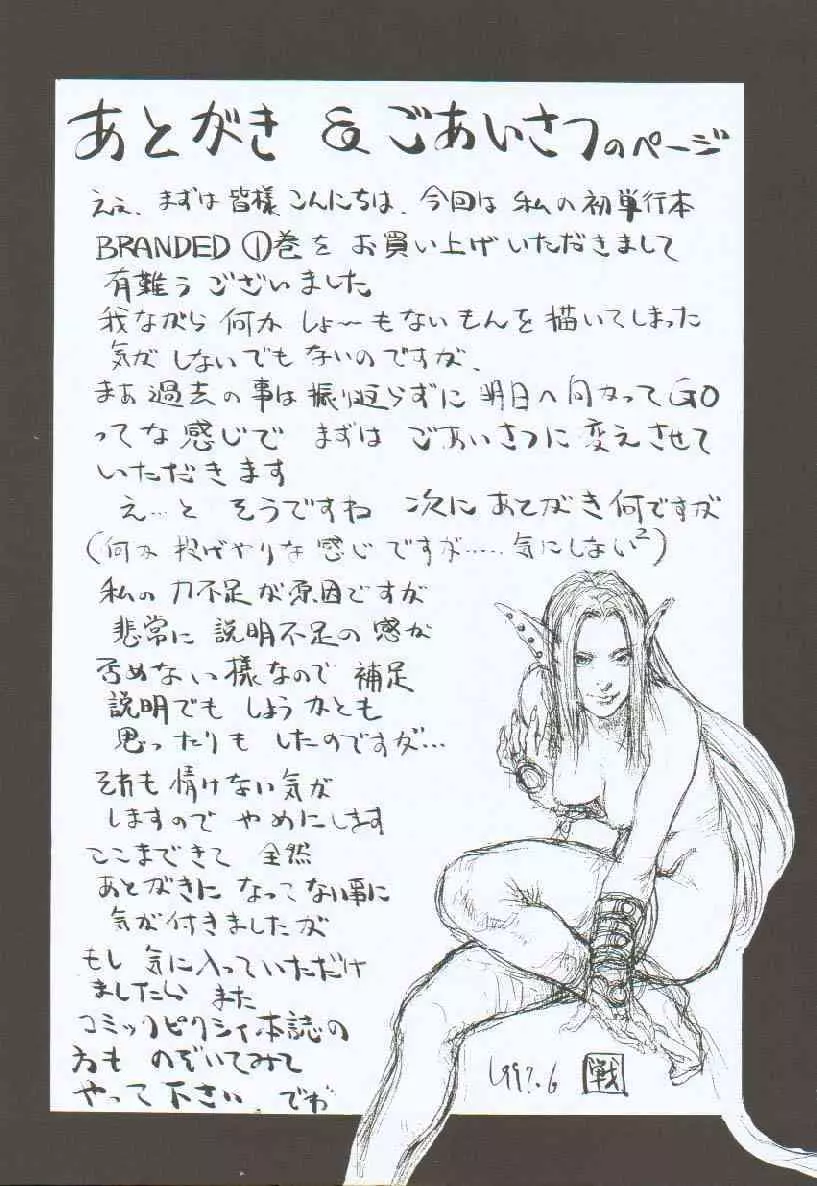 あとがき & ごあいさつのページ
ええ、まずは皆様こんにちは、今回は私の初単行本
BRANDED ①巻をお買い上げいただきまして
有難うございました
我ながら何かしょ〜もないもんを描いてしまった
気がしないでもないのですが、
まあ過去の事は振り返らずに明日へ向かってGO
ってな感じでまずはごあいさつに変えさせて
いただきます
え…とそうですね 次にあとがき何ですが
(何か投げやりな感じですが……気にしない²)
私の力不足が原因ですが
非常に説明不足の感が
否めない様なので補足
説明でもしようかとも
思ったりもしたのですが…
それも情けない気が
しますのでやめにします
ここまできて全然
あとがきになってない事に
気が付きましたが
もし気に入っていただけ
ましたら また
コミックピクシィ本誌の
方ものぞいてみて
やって下さい でわ
1997.6 戦